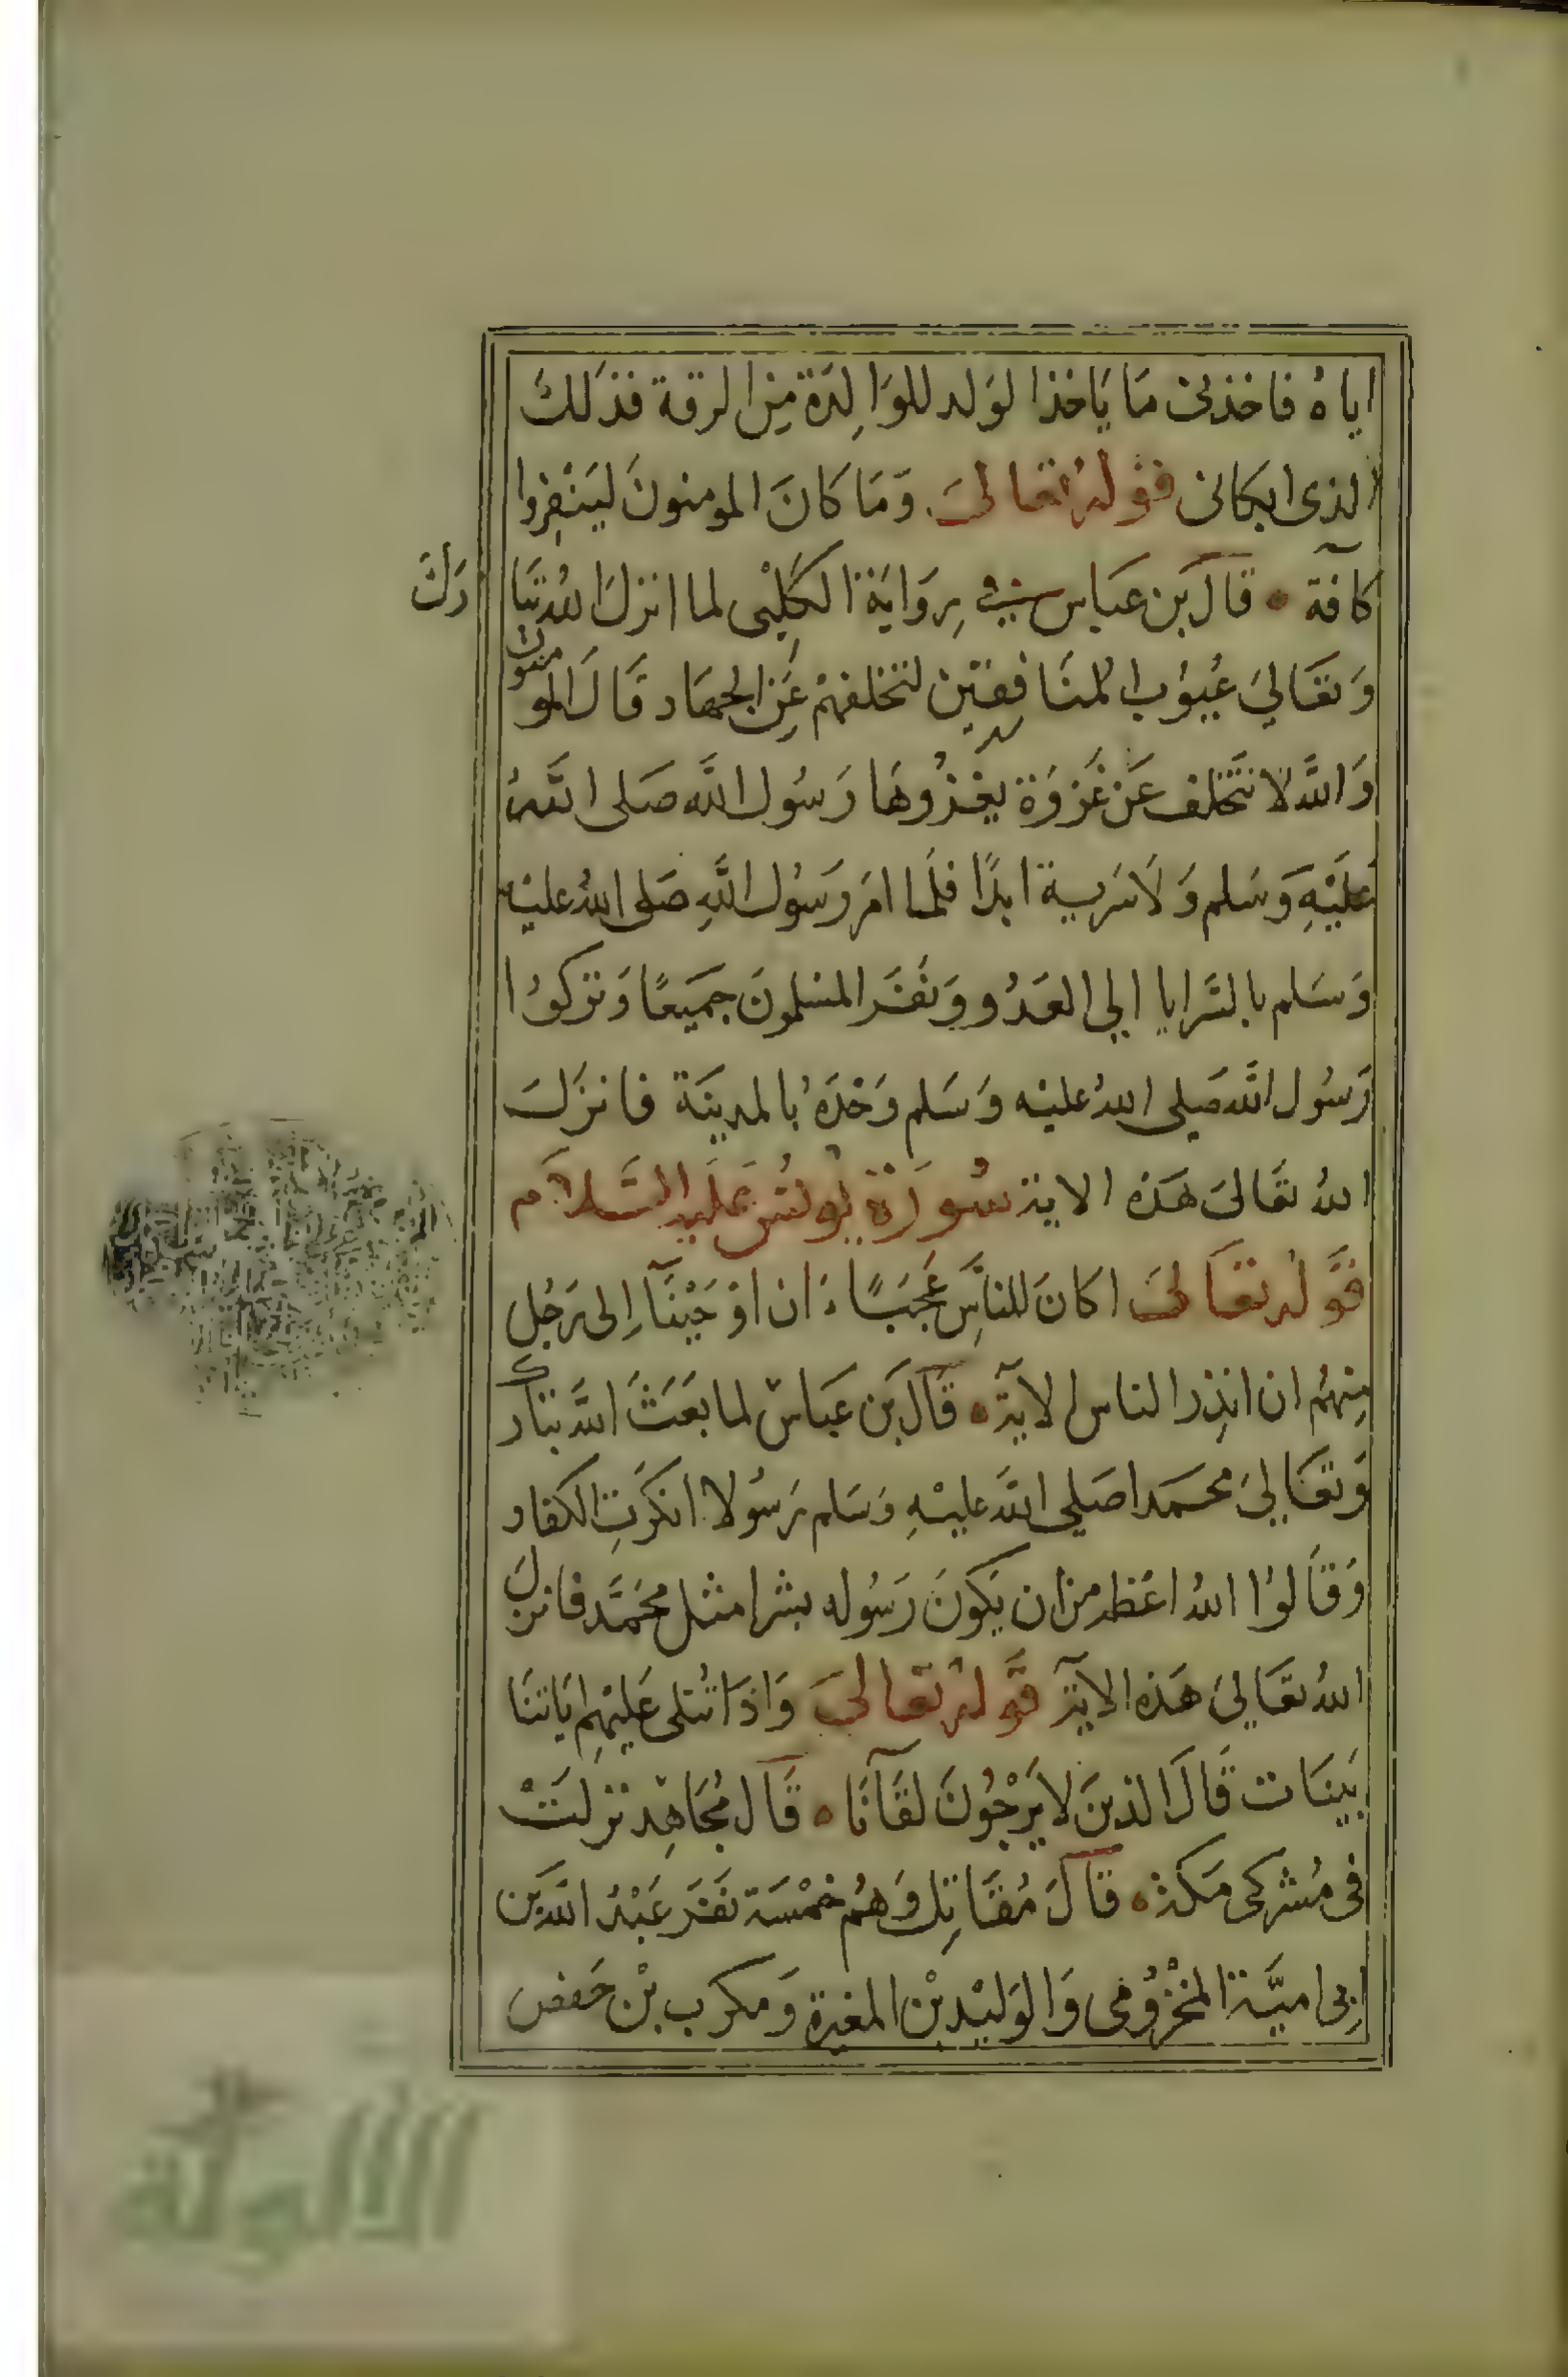 اياهُ فاخذنى مَا يَاخذ الوَلد للوَالِدَة مِن الرقة فذلكَ
الذى ابكانى قوله تعالىَ وَمَا كانَ المومنونَ ليَنفِروا
كآفة ۝ قال بن عبَاس في رِوَايَة الكَلِبْى لما انزلَ اللهُ تبَا
رَكَ
وَتعَاليَ عُيوُب المنَافِقين لتخلفهمْ عَنِ الجهَاد قَالَ المو
منون
وَاللَّه لا نتَخلف عَن غَزوَة يغزُوهَا رَسُول الله صَلى اللهُ
عَليْهِ وَسَلم وَلَا سَرية ابدًا فلَما امَر رَسُول اللَّهِ صَلى اللهُ عليْه
وَسَلم بالسَرايا الي العَدُو وَنفَرَ المسْلمونَ جَميَعًا وَتركوُا
رَسُول اللَّه صَلي اللهُ عليْه وَسَلم وَحْدَهُ بالمدينَة فانزَلَ
اللهُ تعَالىَ هَذه الاية سُورَة يونسُ عَليه السَّلام
قوَله تعَالىَ اكانَ للناسِ عَجَبًا ان اوْحَيْنَآ اِلى رَجُل
مِنهُم ان انذِر الناس الاية ۝ قالَ بن عَبَاسْ لما بَعَثَ اللَّه تبَارك
وَتعَاليَ محمَدا صَلي اللَّه عليْهِ وَسَلم رَسُولا انكرَتِ الكفار
وَقالوُا اللهُ اعْظم من ان يَكونَ رَسُوله بشرا مثل محَمَّد فانزلَ
اللهُ تعَاليَ هَذه الاية قوَله تعَالىَ وَاذَا تُتلى عَليْهِم ايَاتنَا
بَينَات قَالَ الذينَ لا يَرْجُونَ لقَآنَا ۝ قَالَ مُجَاهِد نزلَتْ
فى مُشركى مَكة ۝ قالَ مُقاتِل وَهُم خمْسَة نفَر عَبْدُ اللَّه بَن
اِبى اميَّة المخْزوُمى وَالوَليْد بْن المغيرة وَمكرب بْن حَفص